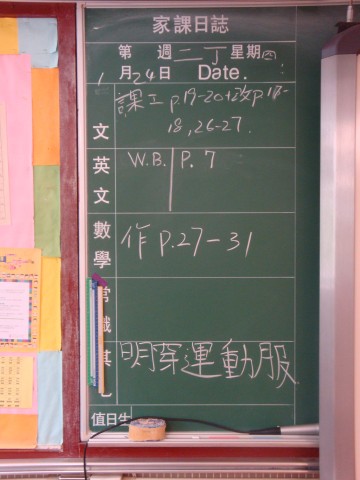 家課日誌
第 週 二丁 星期四
1月24日 Date.
文 課工 p.19-20+改p.17-
18, 26-27.
英文 W.B. P. 7
數學 作 P.27-31
常識
其他 明穿運動服
值日生